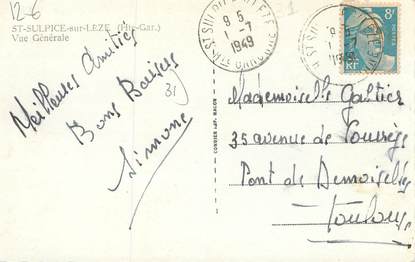 12-6
ST-SULPICE-sur-LÈZE (Hte-Gar.)
Vue Générale
Meilleures Amitiés
Bons Baisers
Simone
31
COMBIER IMP. MACON
8 5
1 - 7
1949
HTE GARONNE
8F
Mademoiselle Galtier
35 avenue de
Pont des Demoiselles
Toulouse